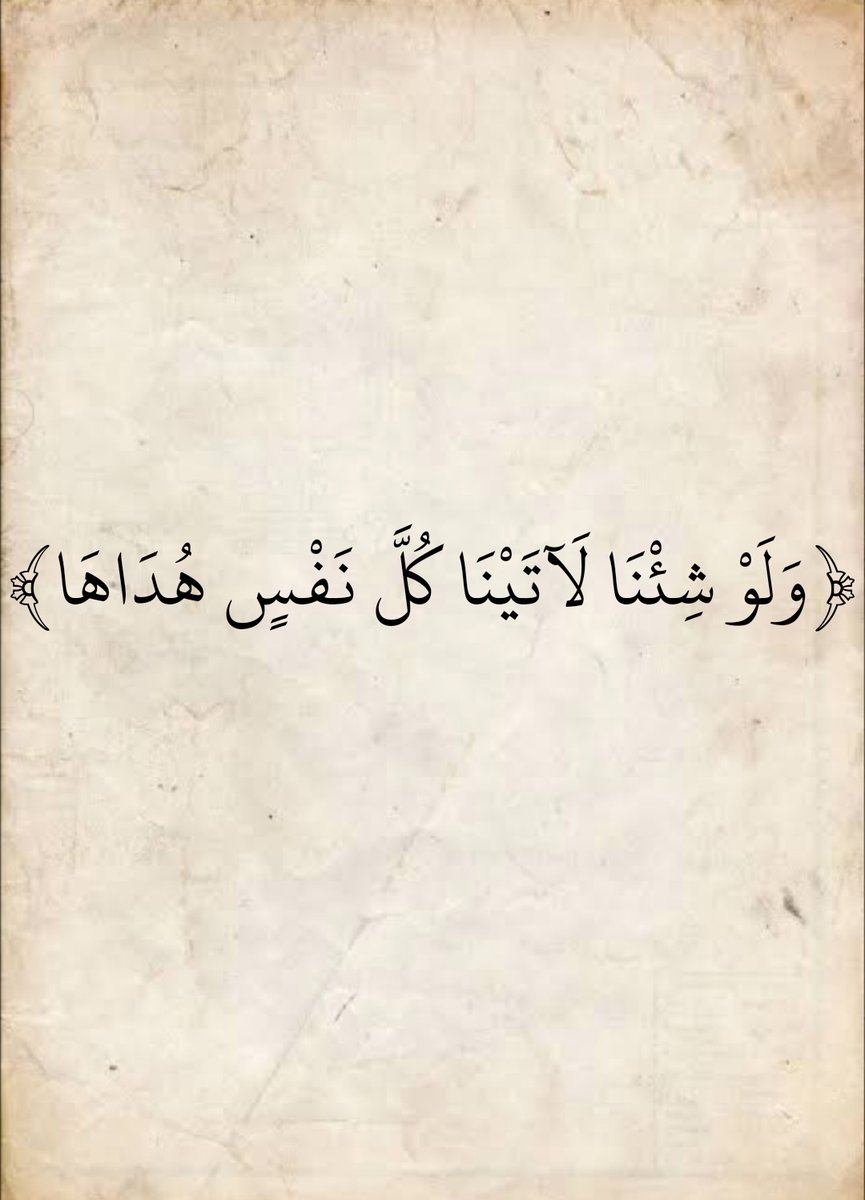 ﴿وَلَوْ شِئْنَا لَآتَيْنَا كُلَّ نَفْسٍ هُدَاهَا﴾